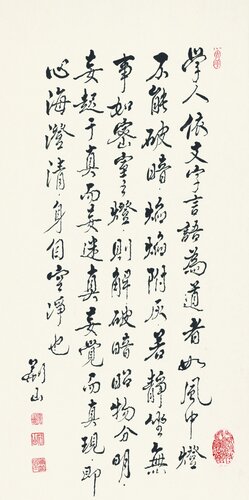 學人依文字言語為道者如風中燈
不能破暗焰焰附灰若靜坐無
事如密室之燈則解破暗昭物分明
妄起于真而妄迷真妄覺而真現即
心海澄清身自空淨也
荊山